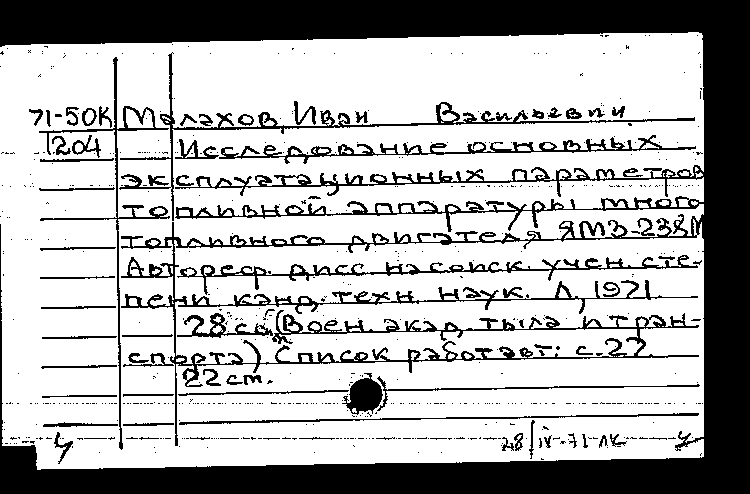 71-50К Малахов, Иван Васильевич.
1204 Исследование основных
эксплуатационных параметров
топливной аппаратуры много-
топливного двигателя ЯМЗ-238М
Автореф. дисс. на соиск. учен. сте-
пени канд. техн. наук. Л., 1971.
28 с. (Воен. акад. тыла и тран-
спорта) Список работ авт: с.27.
22 ст.
28/IV-71 ЛК